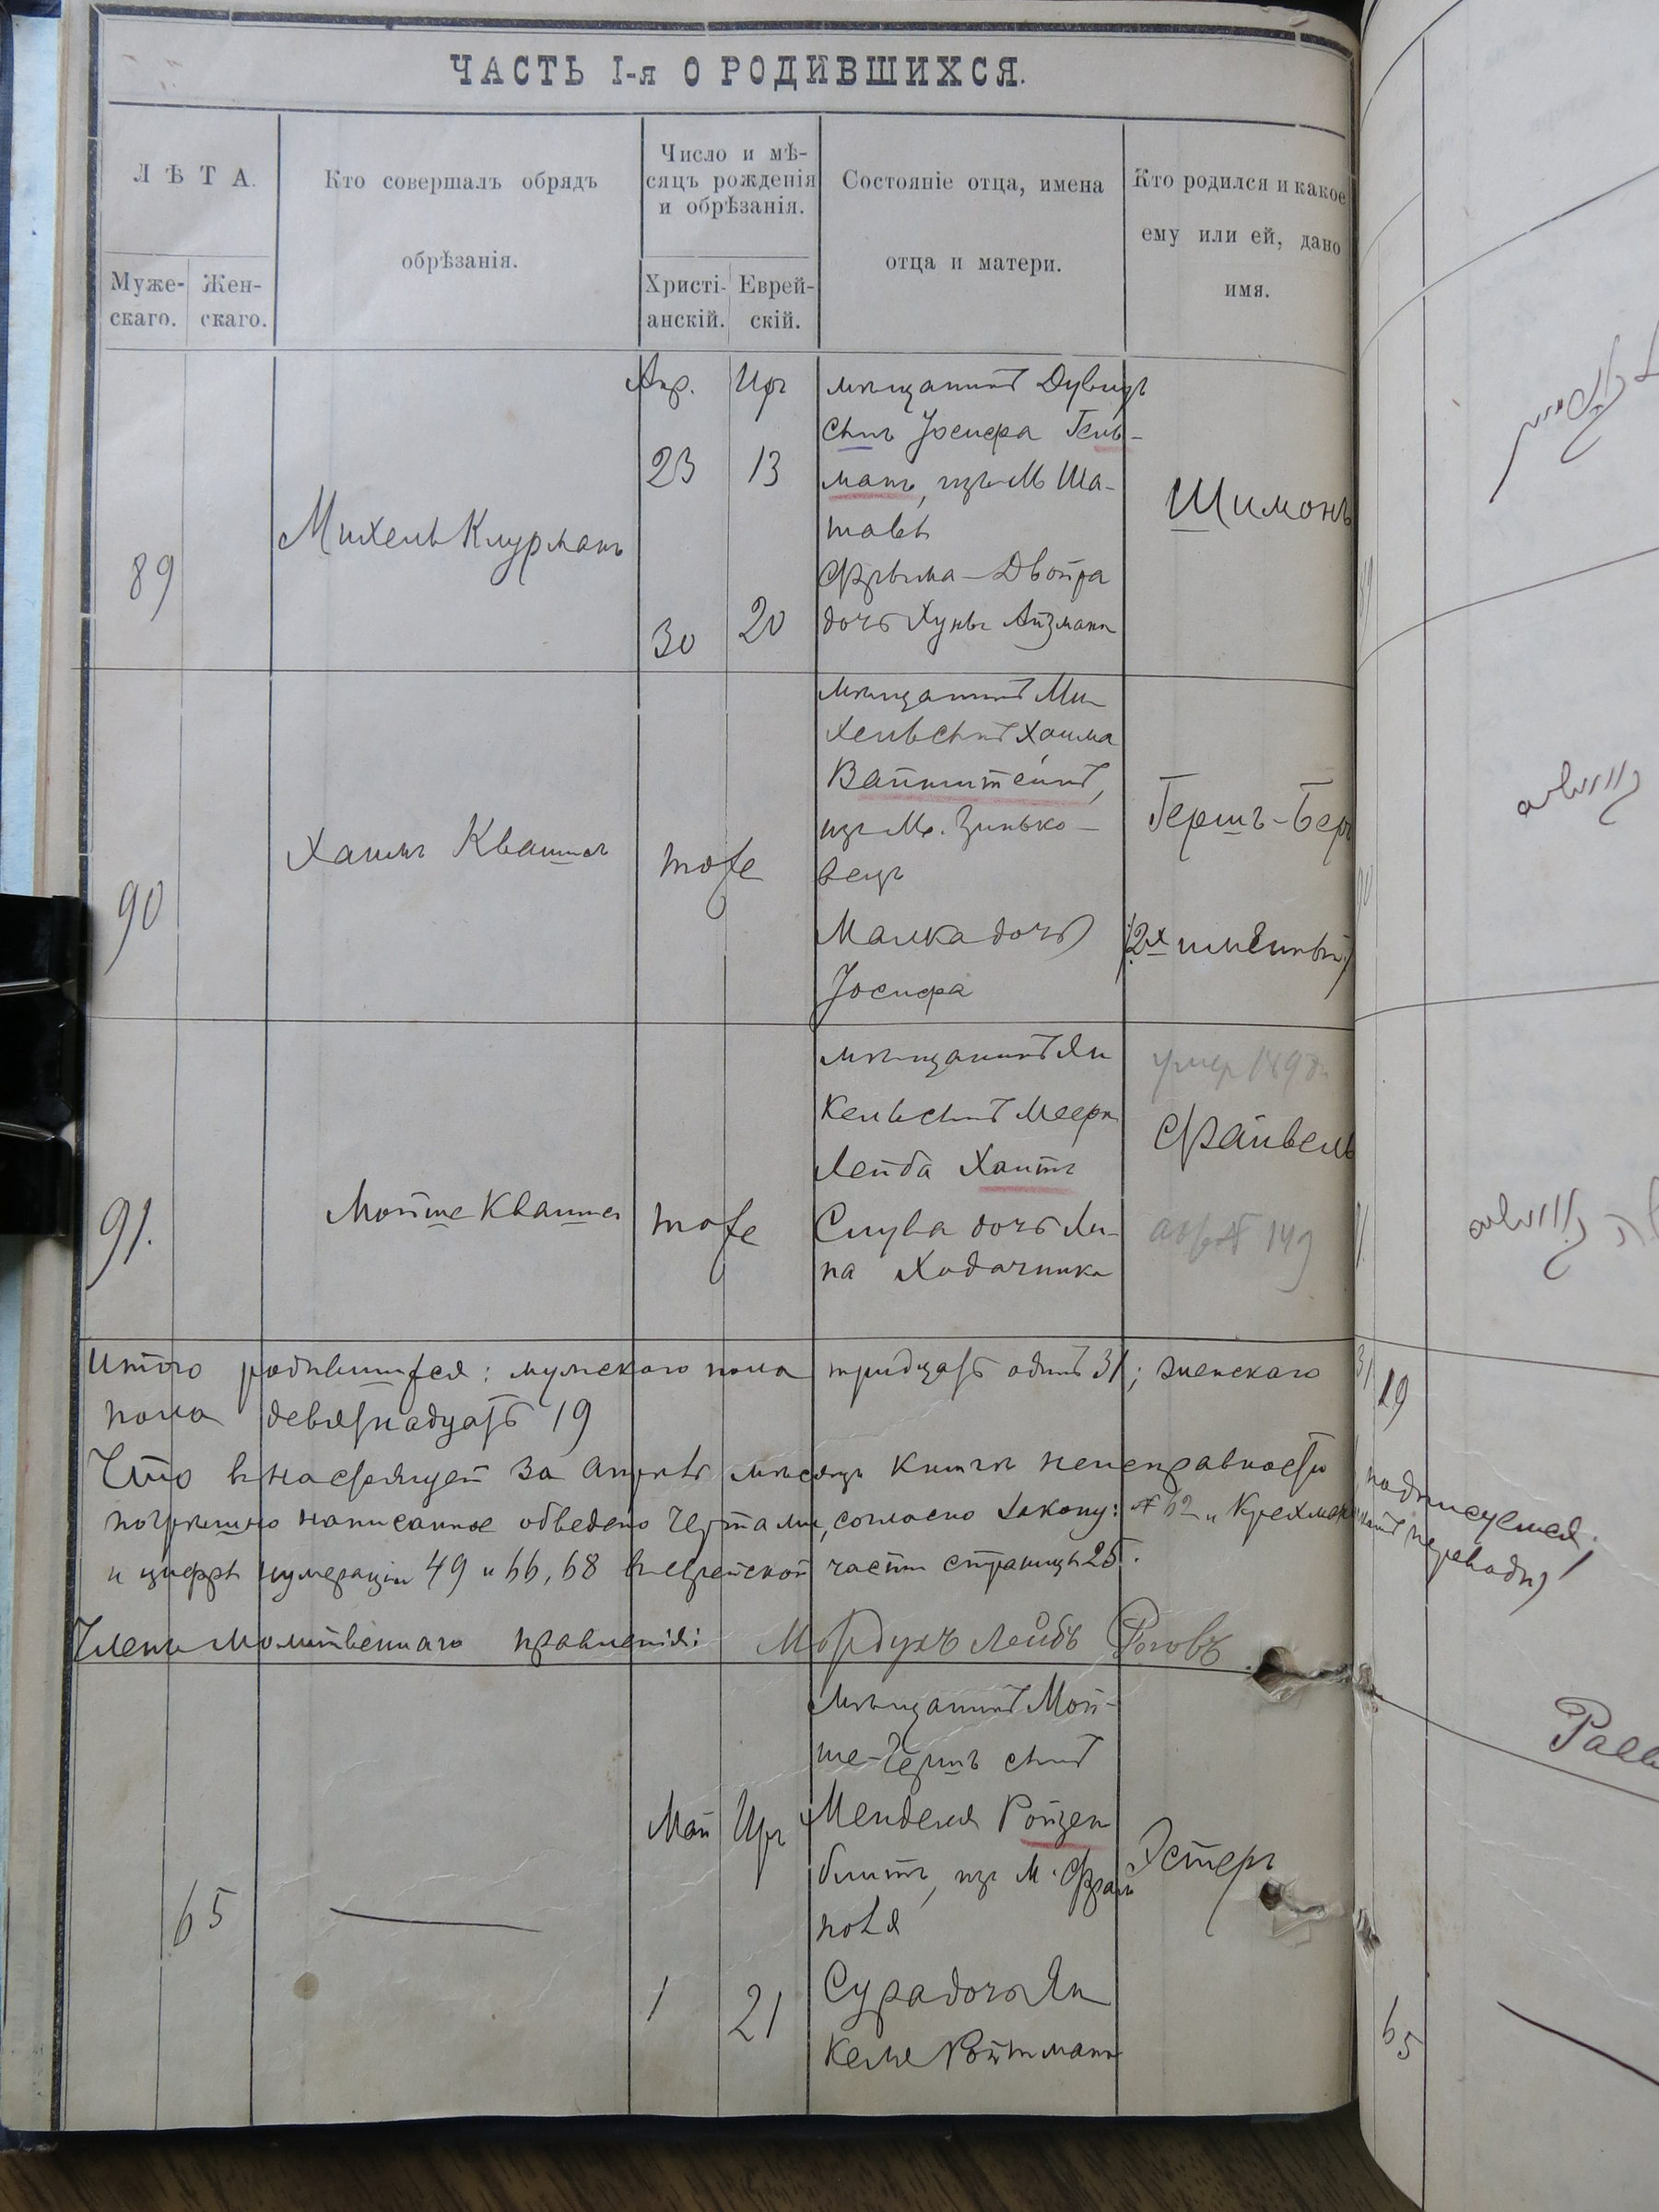 ЧАСТЬ I-я О РОДИВШИХСЯ.
ЛѢТА.
Муже-
скаго.
Жен-
скаго.
Кто совершалъ обрядъ
обрѣзанія.
Число и мѣ-
сяцъ рожденія
и обрѣзанія.
Христі-
анскій.
Еврей-
скій.
Состояніе отца, имена
отца и матери.
Кто родился и какое
ему или ей, дано
имя.
89
Михель Клурманъ
Апр. Иръ
23 13
30 20
мѣщанинъ Дувидъ
сынъ Іосифа Гель-
манъ, изъ М. Ша-
тавы
Фрыма-Двойра
дочь Хуны Айзмана
Шимонъ
90
Хаимъ Квашта
тоже
мѣщанинъ Ми-
хель сынъ Хаима
Вайнштейнъ,
изъ М. Зинько-
вецъ
Малка дочь
Іосифа
Гершъ-Беръ
(2х именный)
91.
Мойше Квашта
тоже
мѣщанинъ Ян
кель сынъ Меера
Лейба Хаитъ
Слува дочь Ли-
па Ходачника
умер 189
Файвель
Итого родившихся: мужскаго пола тридцать одинъ 31; женскаго
пола девятнадцать 19
Что въ настоящей за Апрѣль мѣсяцъ книгѣ неисправности
погрѣшно написанное обведено чертами, согласно закону: № 62 и
и цифры нумераціи 49 и 66, 68 въ еврейской части страницы 25.
подписуемся.
Члены молитвеннаго правленія: Мордухъ Лейбъ Роговъ
65
Май Иръ
1 21
мѣщанинъ Мой-
ше-Гершъ сынъ
Менделя Ройзен
блитъ, изъ М. Фрам
поля
Сура дочь Ян
келя Ройтмана
Эстеръ
19
65